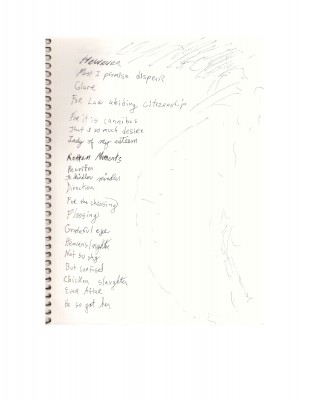 However
But I promise dispair
Glare
For Law abiding citizenship
For it is cannibus
That I so much desire
Lady of my esteem
Moments
Rewritten
To hidden mindless
Direction
For the choosing
Flossing
Grateful eye
Not so shy
But confused
Chicken slaughter
Ever After
to so get her